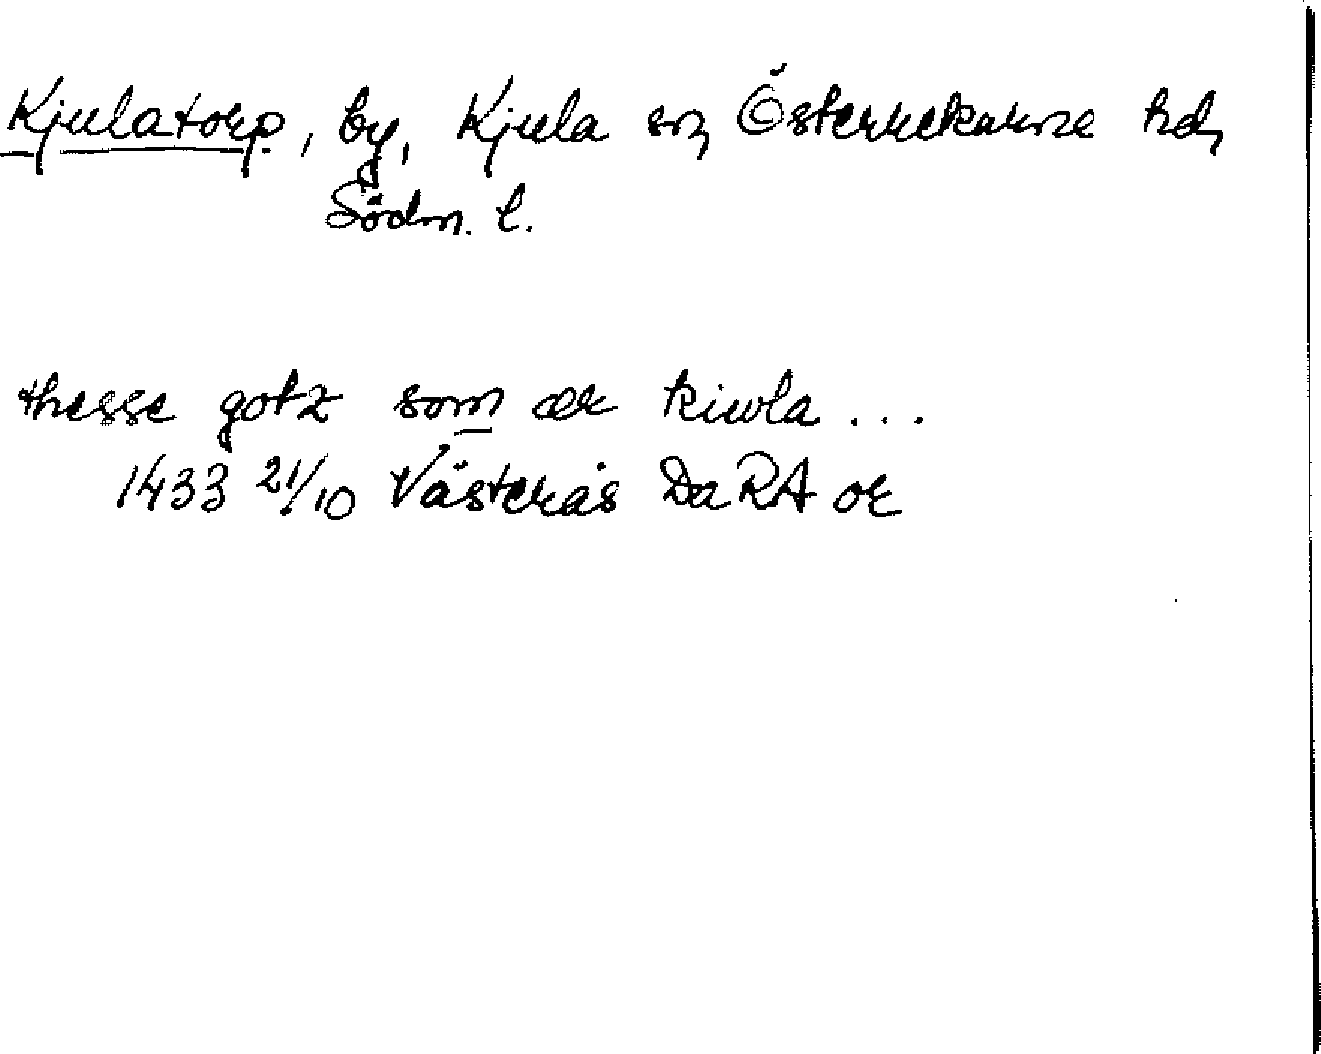 Kjulatorp, by, Kjula sn, Österrekarne hd,
Södm. l.
thesse gotz som ær kiwla ...
1433 21/10 Västerås Da RA or